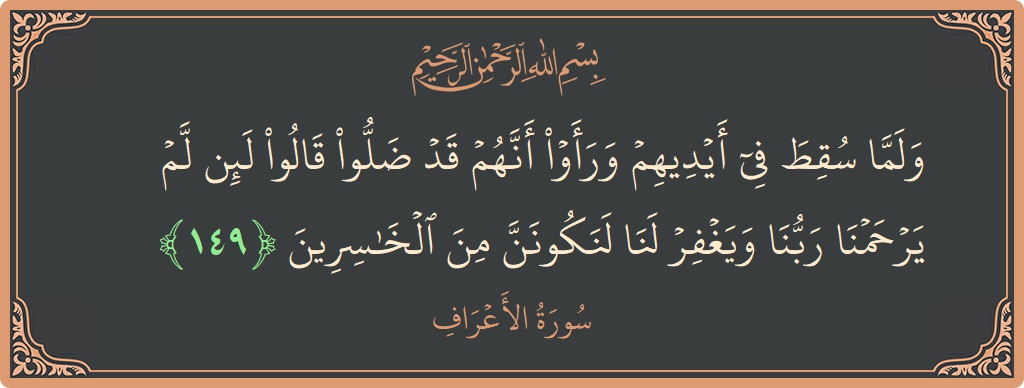 بِسْمِ اللهِ الرَّحْمٰنِ الرَّحِيْمِ
وَلَمَّا سُقِطَ فِيٓ أَيۡدِيهِمۡ وَرَأَوۡاْ أَنَّهُمۡ قَدۡ ضَلُّواْ قَالُواْ لَئِن لَّمۡ
يَرۡحَمۡنَا رَبُّنَا وَيَغۡفِرۡ لَنَا لَنَكُونَنَّ مِنَ ٱلۡخَٰسِرِينَ ﴿١٤٩﴾
سُورَةُ الأَعۡرَافِ